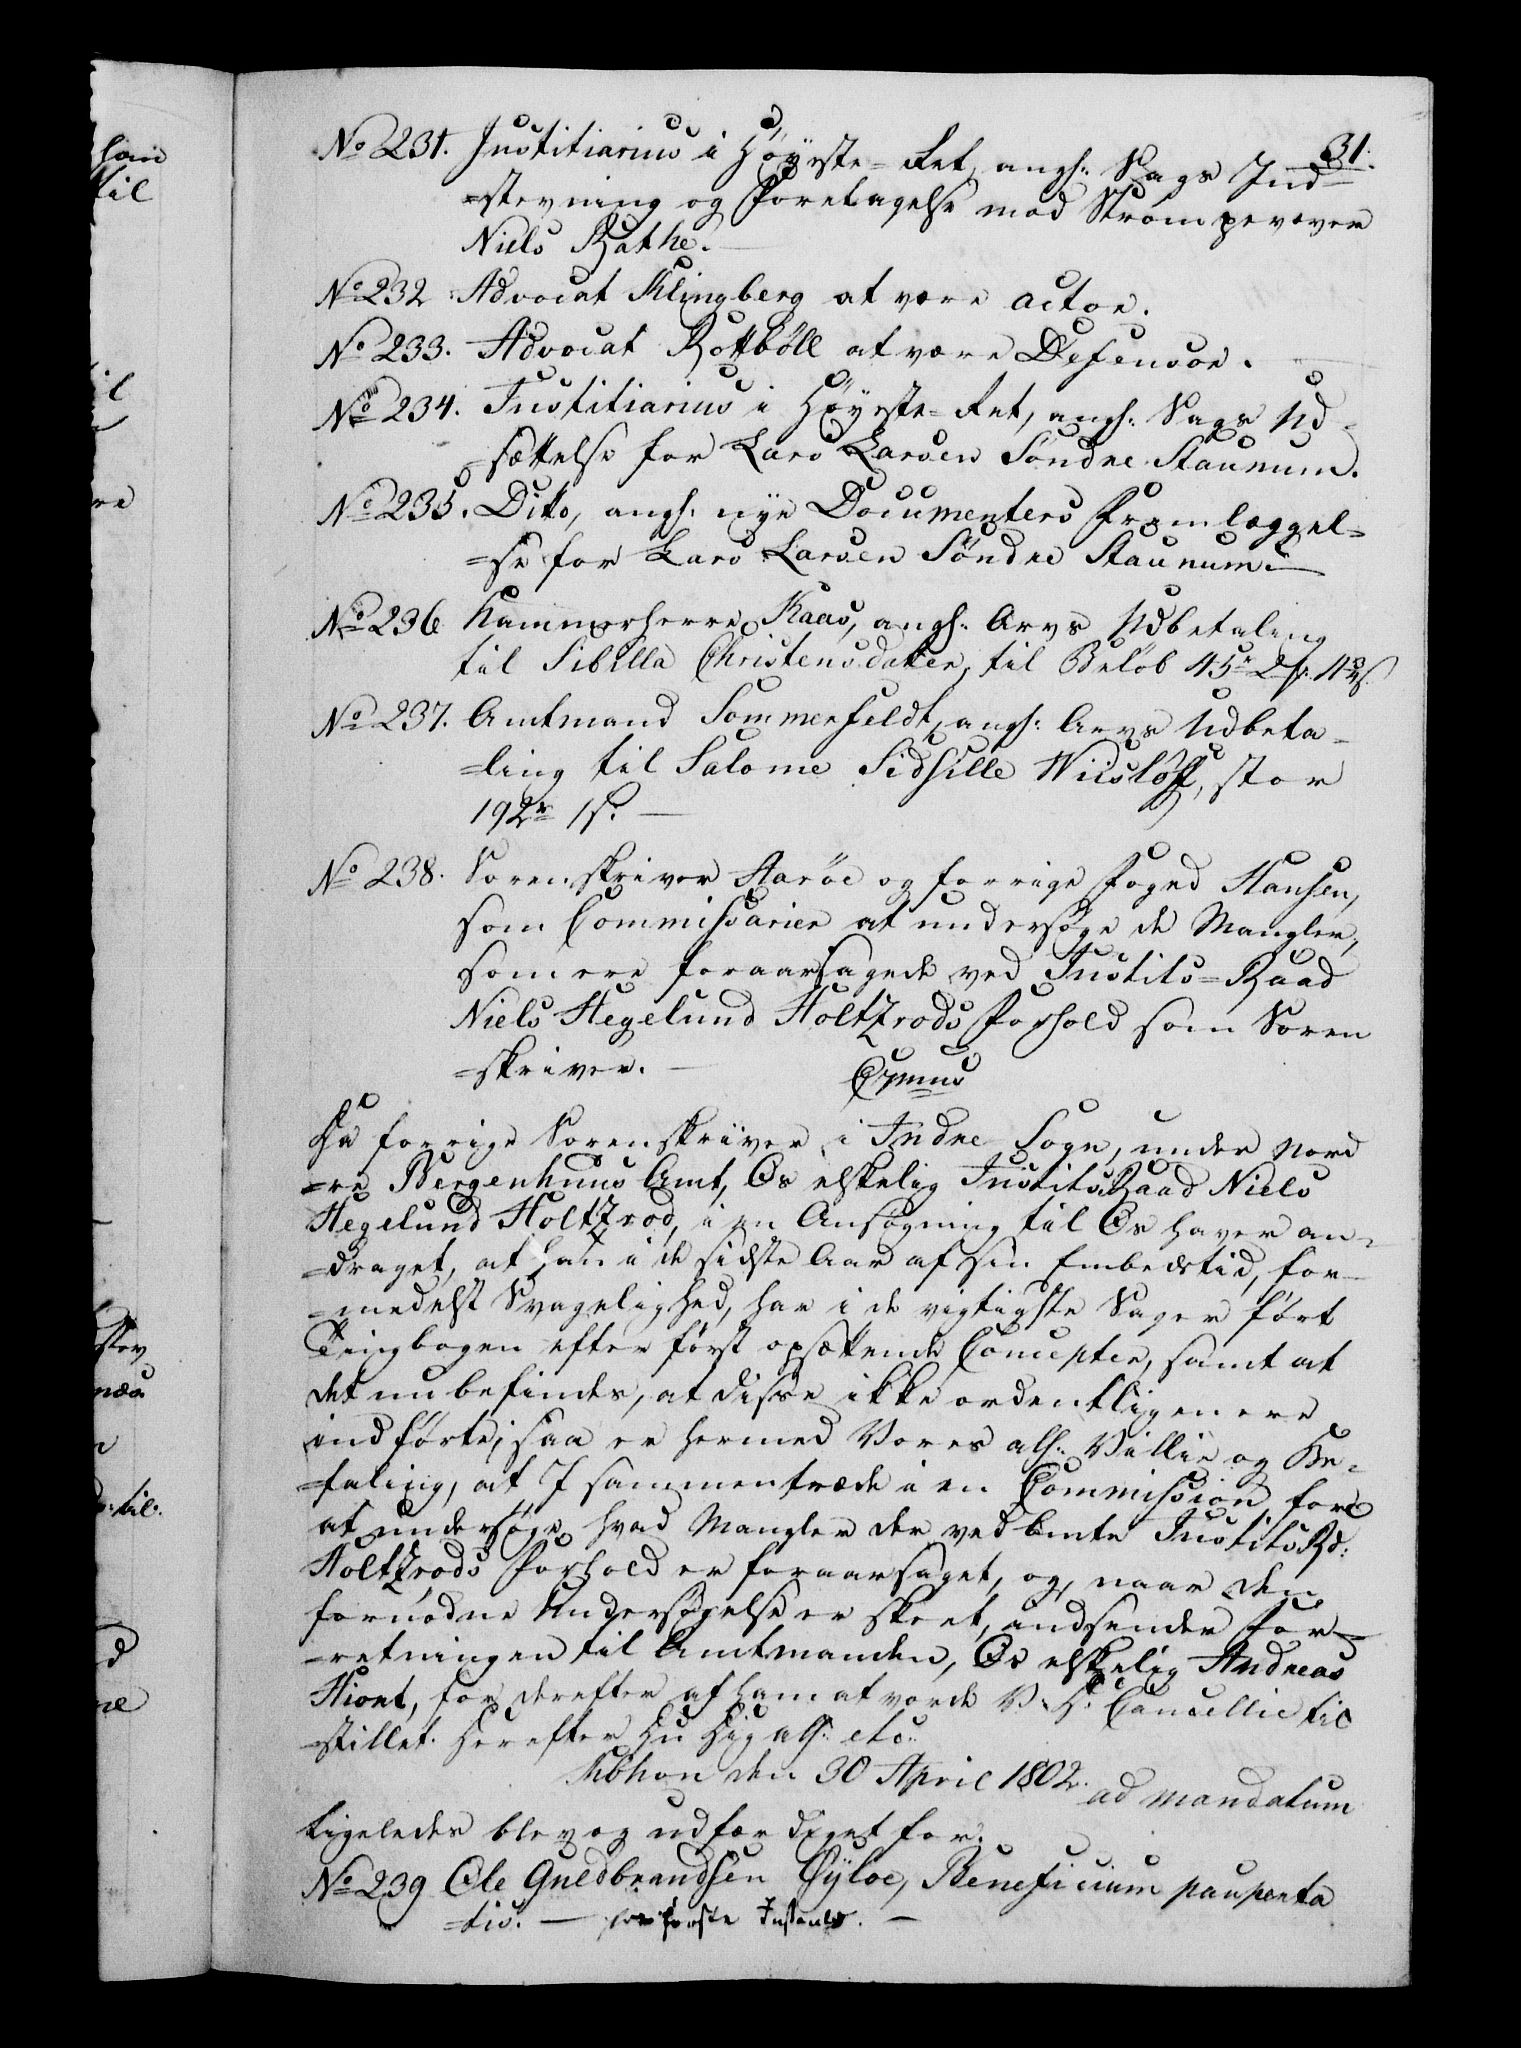 31.
No 231. Justitiarius i Höyeste-Ret, angh: Sags Ind-
=stevning og Foretagelse mod Strømpevæver
Niels Bathe.
No 232 Advocat Klingberg at være actor.
No 233. Advocat Rottböll at være Defensor.
No 234. Justitiarius i Höyeste-Ret, angh: Sags Ud-
=sættelse for Lars Larsen Söndre Staunum.
No 235. Dito, angh: nye Documenters Fremlæggel=
=se for Lars Larsen Söndre Staunum.
No 236 Kammerherre Kaas, angh: Arvs Udbetaling
til Sibilla Christensdatter, til Beløb 45r 2
No 237. Amtmand Sommerfeldt, angh: Arvs Udbeta-
=ling til Salome Sidsille Wiislöff, stor
192r 1s.
No 238. Sorenskriver Aaröe og forrige Foged Hansen,
som Commissarier at undersøge de Mangler,
som ere foraarsagede ved Justits=Raad
Niels Hegelund Holtzrods Forhold som Soren
=skriver.
Da forrige Sorenskriver i Indre Sogn, under Nord
=re Bergenhuus Amt, Os elskelig JustitsRaad Niels
Hegelund Holtzrod, i en Ansøgning til Os haver an=
=draget, at han i de sidste Aar af sin Embedstid, for-
=medelst Svagelighed, har i de vigtigste Sager ført
Tingbogen efter først opsættende Concepter, samt at
det nu befindes, at disse ikke ordentligen ere
indførte; saa er hermed Vores all: Villie og Be=
=faling, at I sammentræde i en Commission, for
at undersøge, hvad Mangler der ved bmte JustitsRd:
Holtzrods Forhold er foraarsaget, og, naar den
fornødne Undersøgelse er skeet, indsender For=
=retningen til Amtmanden, Os elskelig Andreas
Hiort, for derefter af ham at vorde V. D. Cancellie til
=stillet. Herefter etc.
Kbhavn den 30 April 1802.
ad mandatum
Ligeledes blev og udfærdiget for:
No 239 Ole Guldbrandsen Öyloe, Beneficium pauperta
=tis. — for første Instants. —